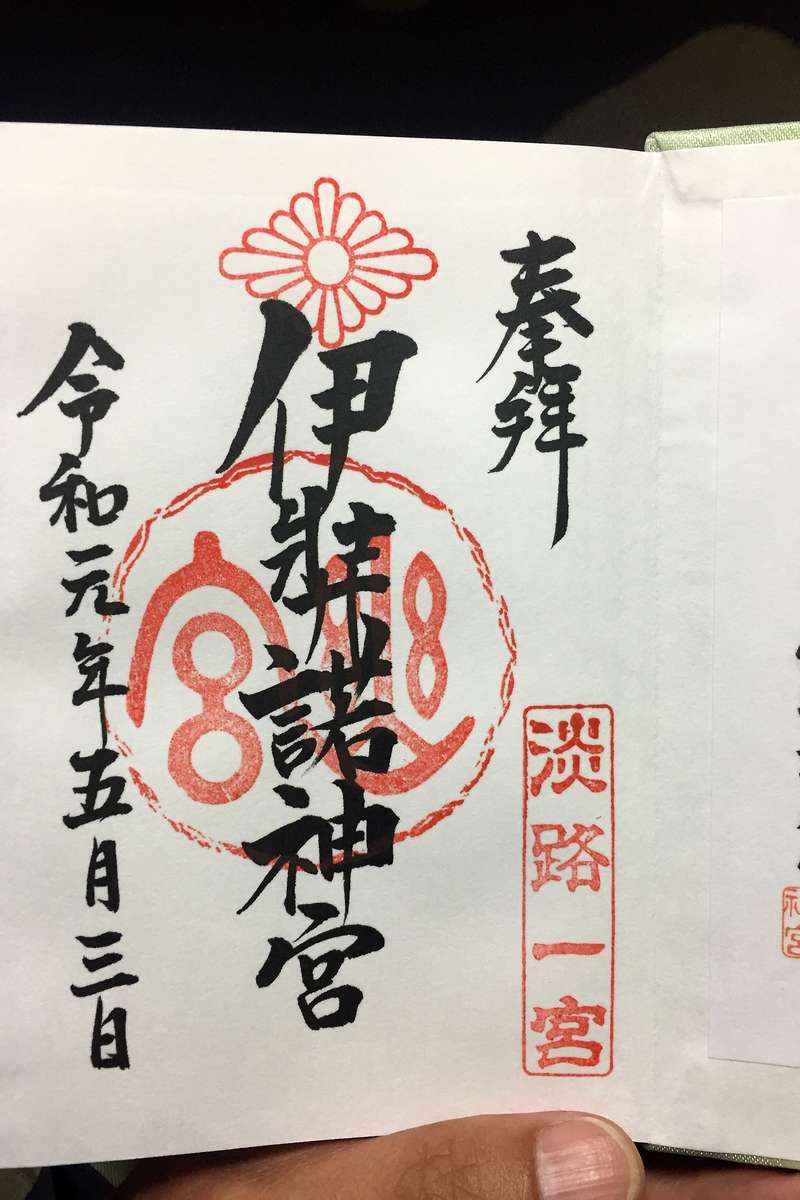 奉拝
淡路一宮
伊弉諾神宮
令和元年五月三日